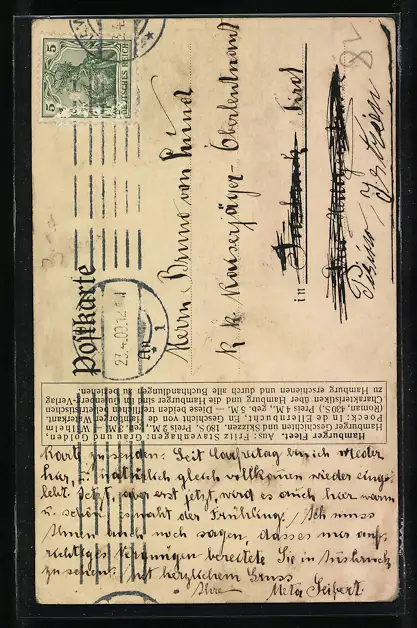 Postkarte
5
DEUTSCHES REICH
5
23.4.09.12
Herrn Bruno von Lund
k. k. Kaiserjäger-Oberleutnant
in Innsbruck Tirol
Pisino, Istrien
18
Hamburger Fleet. Aus: Fritz Stavenhagen: Grau und Golden,
Hamburger Geschichten und Skizzen. 180 S. Preis 2 M., geb. 3 M. — Wilhelm
Poeck: In de Ellernbucht. En Geschicht von de Hamborger Waterkant.
(Roman, 430 S.) Preis 4 M., geb. 5 M. — Diese beiden niederdeutschen
Charakteristiken über Hamburg und die Hamburger sind im Gutenberg-Verlag
zu Hamburg erschienen und durch alle Buchhandlungen zu beziehen.
Karte zusenden. Seit bin ich wieder
hier, u. natürlich gleich vollkommen wieder einge-
lebt. Jetzt, aber erst jetzt, wird es auch hier warm
u. schön, es naht der Frühling. Ich muss
Ihnen auch noch sagen, dass es mir auf-
richtiges Vergnügen bereitete Sie in Innsbruck
zu sehen. Mit herzlichem Gruss
Ihre Meta Seifert.